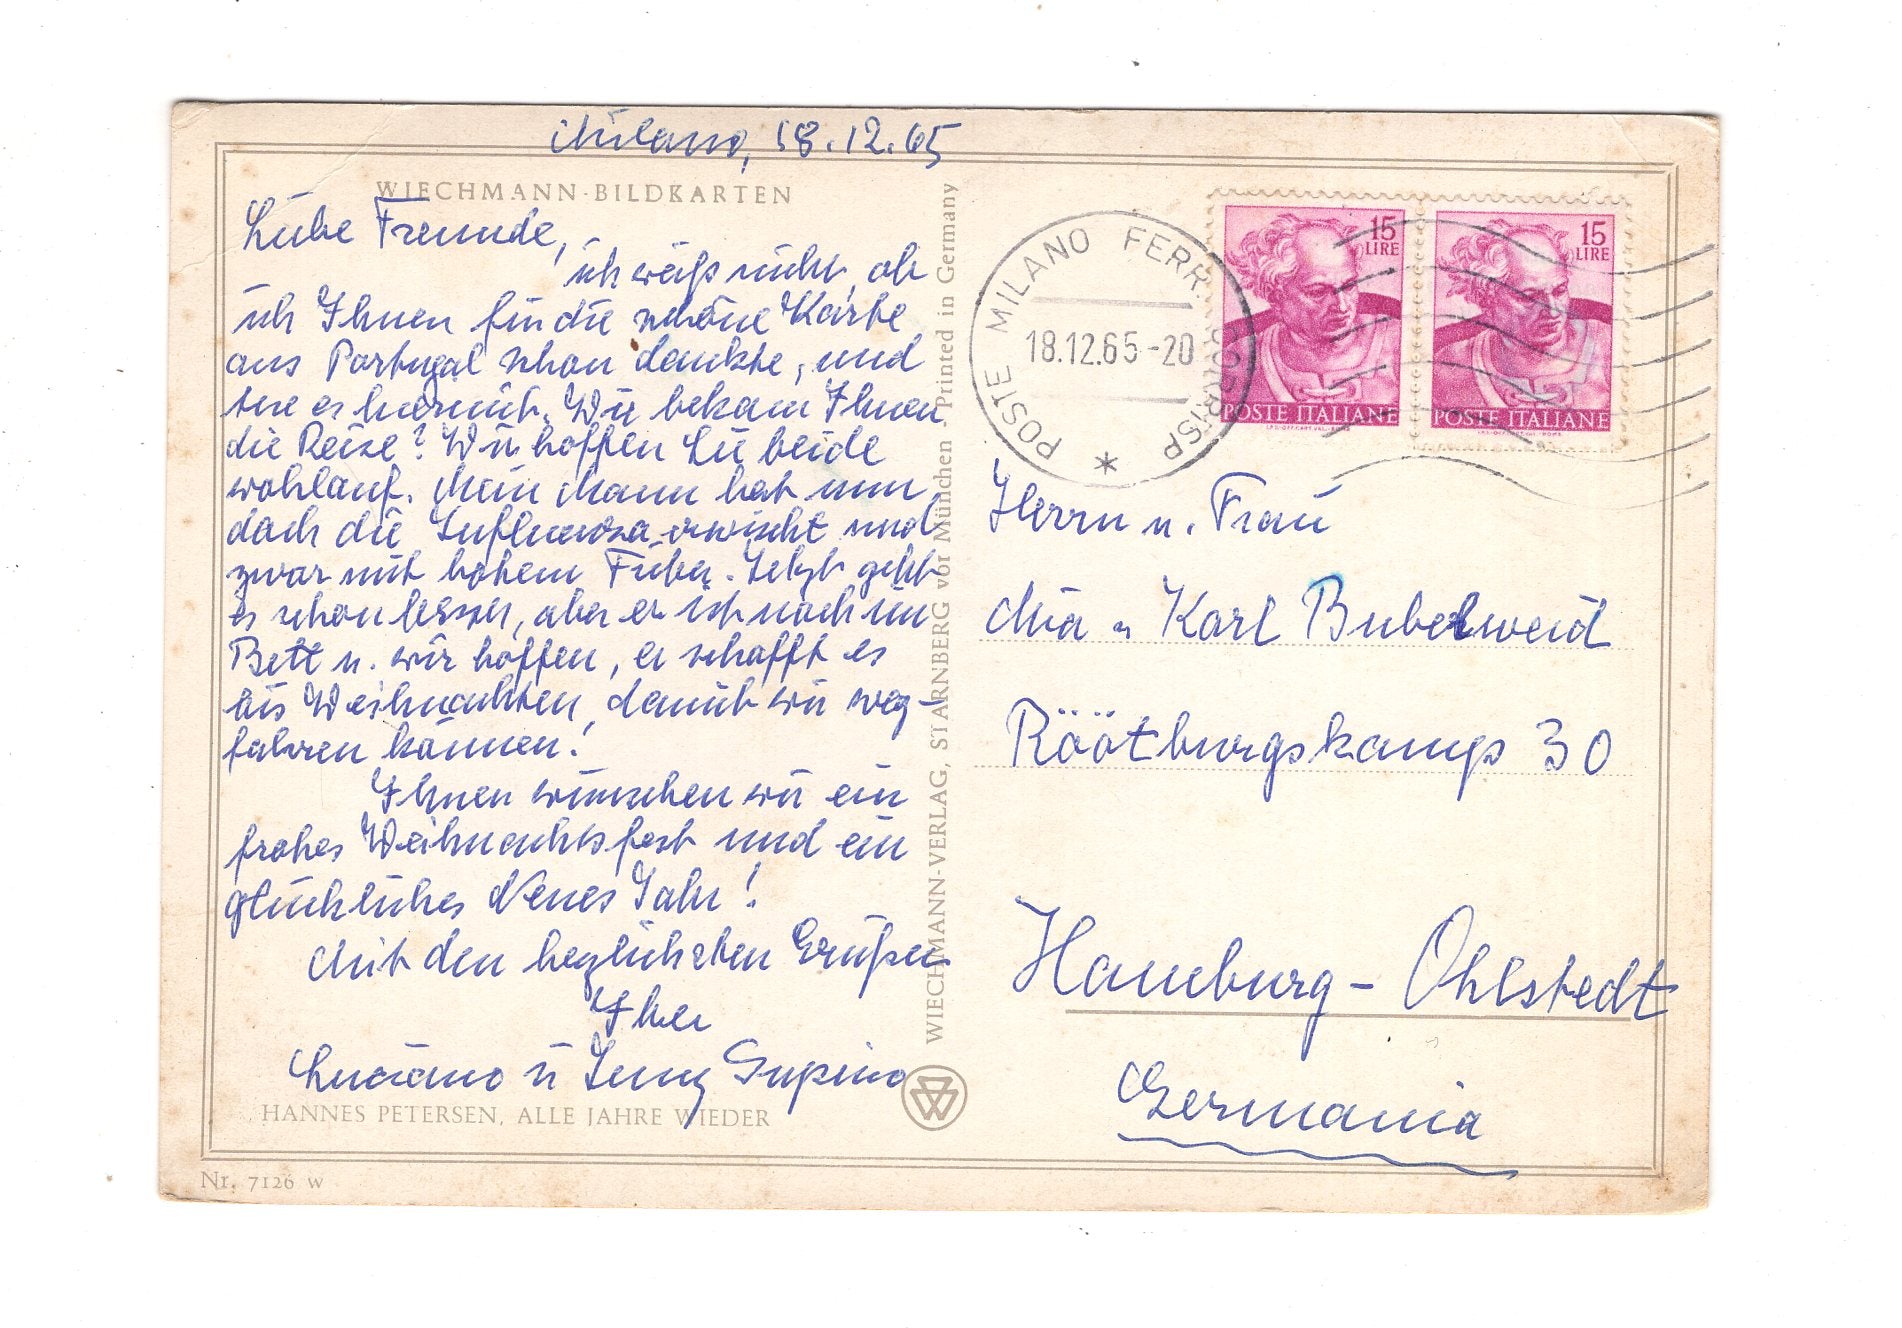 Milano, 18.12.65
WIECHMANN-BILDKARTEN
Liebe Freunde,
ich weiß nicht, ob
ich Ihnen für die schöne Karte
aus Portugal schon dankte, und
tue es hiermit. Wie bekam Ihnen
die Reise? Wir hoffen Sie beide
wohlauf. Mein Mann hat nun
doch die Influenza erwischt und
zwar mit hohem Fieber. Jetzt geht
es schon besser, aber er ist noch im
Bett u. wir hoffen, er schafft es
bis Weihnachten, damit wir weg-
fahren können!
Ihnen wünschen wir ein
frohes Weihnachtsfest und ein
glückliches Neues Jahr!
Mit den herzlichsten Grüßen
Ihre
Luciano u Jenny Supino
HANNES PETERSEN, ALLE JAHRE WIEDER
Nr. 7126 W
WIECHMANN-VERLAG, STARNBERG vor München - Printed in Germany
POSTE MILANO FERR. CORRISP.
18.12.65-20
15
LIRE
POSTE ITALIANE
15
LIRE
POSTE ITALIANE
Herrn u. Frau
Mia u Karl Bubelweid
Röötburgskamp 30
Hamburg - Ohlstedt
Germania